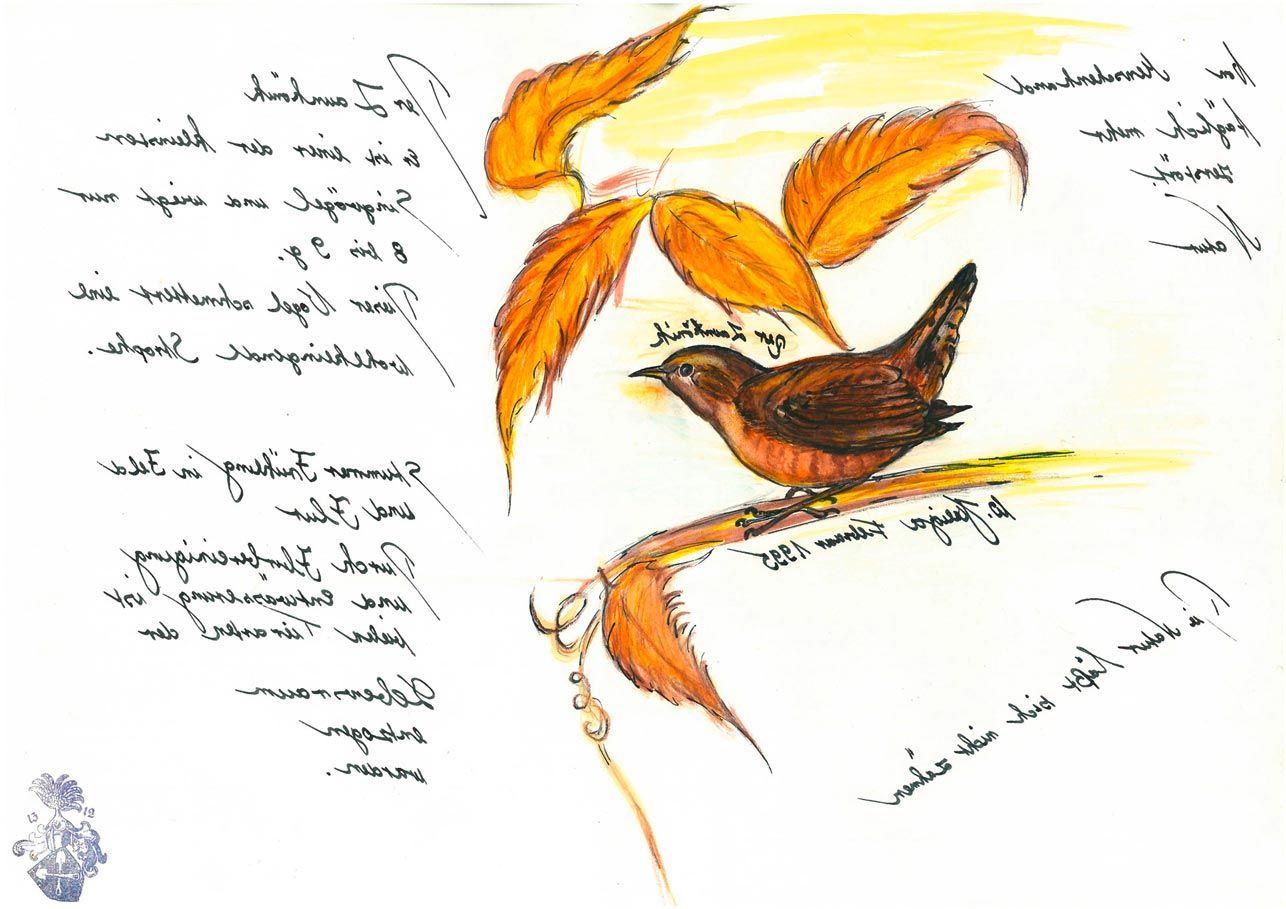 Der Zaunkönik
Er ist einer der kleinsten
Singvögel und wiegt nur
8 bis 9 g.
Dieser Vogel schmettert eine
wohlklingende Strophe.
Stummer Frühling in Feld
und Flur
Durch Flurbereinigung
und Entwässerung ist
vielen Tierarten der
Lebensraum
entzogen
worden.
Der Zaunkönik
Februar 1995
Von Menschenhand
täglich mehr
zerstört.
Natur
Die Natur läßt sich nicht zähmen